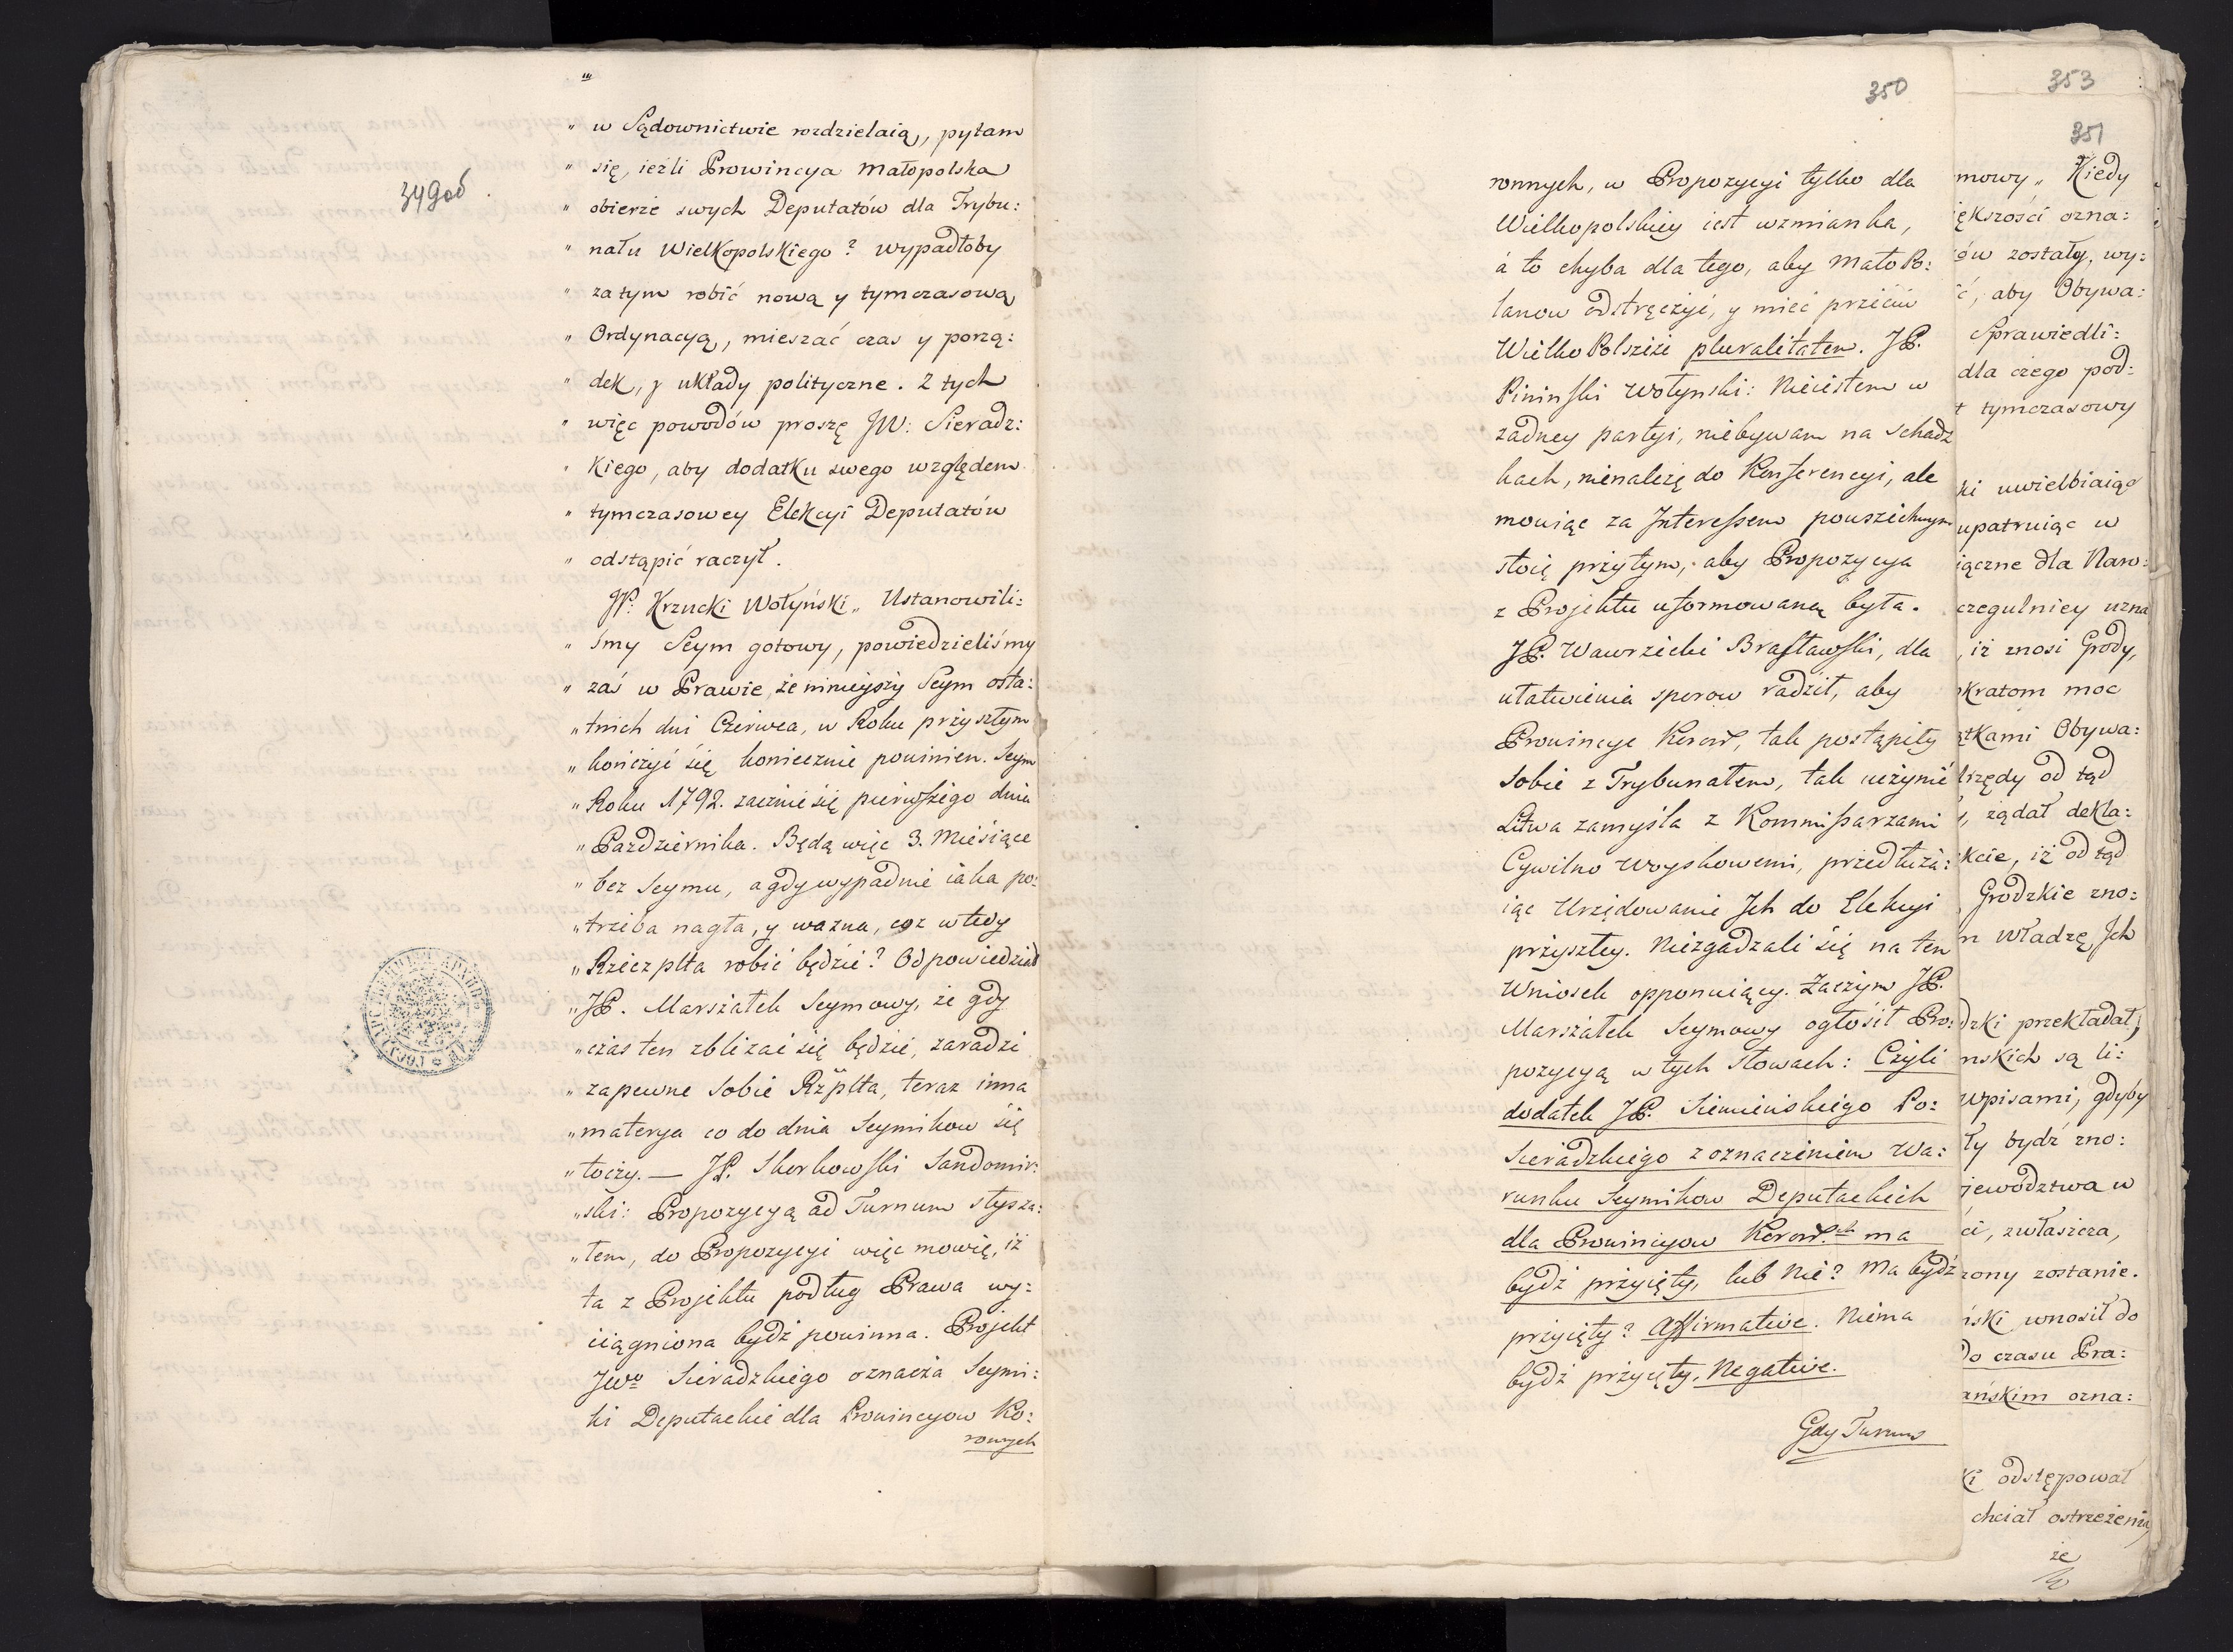 349об.
„ w Sądownictwie rozdzielaią, pytam
„ się, ieźli Prowincya Małopolska
„ obierze swych Deputatów dla Trybu:
„ nału Wielkopolskiego? wypadłoby
„ zatym robić nową y tymczasową
„ Ordynacyą, mieszać czas y porzą:
„ dek, y układy polityczne. Z tych
„ więc powodów proszę JW: Sieradz:
„ kiego, aby dodatku swego względem
„ tymczasowey Elekcyi Deputatów
„ odstąpić raczył.
JP: Krzucki Wołyński„ Ustanowili:
„ śmy Seym gotowy, powiedzieliśmy
„ zaś w Prawie, że ninieyszy Seym osta:
„ tnich dni Czerwca, w Roku przyszłym
„ kończyć się koniecznie powinien. Seym
„ Roku 1792. zacznie się pierwszego dnia
„ Pazdziernika. Będą więc 3. Miesiące
„ bez Seymu, a gdy wypadnie iaka po:
„ trzeba nagła, y wazna, coz wtedy
„ Rzeczplta robić będzie? Odpowiedział
„ JP. Marszałek Seymowy, że gdy
„ czas ten zblizać się będzie, zaradzi
„ zapewne sobie Rzplta, teraz inna
„ materya co do dnia Seymikow się
„ toczy. — JP. Skorkowski Sandomir:
„ ski: Propozycyą ad Turnum słysza:
„ łem, do Propozycyi więc mowię, iż
ta z Projektu podług Prawa wy:
ciągniona bydź powinna. Projekt
JWo Sieradzkiego oznacza Seymi:
ki Deputackie dla Prowincyow Ko:
ronnych
350
ronnych, w Propozycyi tylko dla
Wielkopolskiey iest wzmianka,
á to chyba dla tego, aby MałoPo:
lanow odstręczyć, y mieć przeciw
WielkoPolszcze pluralitatem. JP.
Pininski Wołynski: Nieiestem w
zadney partyi, niebywam na schadz
kach, nienależę do Konferencyi, ale
mowiąc za Interessem powszechnym
stoię przytym, aby Propozycya
z Projektu uformowaną była.
JP. Wawrzecki Brasławski, dla
ułatwienia sporow radził, aby
Prowincye Koronne, tak postąpiły
sobie z Trybunałem, tak uczynić
Litwa zamyśla z Kommissarzami
Cywilno Woyskowemi, przedłuża:
iąc Urzędowanie Ich do Elekcyi
przyszłey. Niezgadzali się na ten
Wniosek opponuiący. Zaczym JP.
Marszałek Seymowy ogłosił Pro:
pozycyą w tych słowach: Czyli
dodatek JP. Siemieńskiego Po:
Sieradzkiego z oznaczeniem Wa:
runku Seymikow Deputackich
dla Prowincyow Koronnych ma
bydź przyięty, lub Nie? Ma bydź
przyięty? Affirmative. Niema
bydź przyięty, Negative.
Gdy Turnus
353
351
mowy„ Kiedy
iększości ozna:
ów zostały, wy:
ć, aby Obywa:
Sprawiedli:
dla czego pod:
t tymczasowy
ki uwielbiaiąc
upatruiąc w
iączne dla Naro:
czegulniey uzna
, iż znosi Grody,
kratom moc
ątkami Obywa:
Urzędy od tąd
, żądał dekla:
kcie, iż od tąd
Grodzkie zno:
n władzę Ich
dzki przekładał,
nskich są li:
wpisami, gdyby
ły bydź zno:
jewództwa w
ci, zwłaszcza,
zony zostanie.
ński wnosił do
do czasu Pra:
ańskim ozna:
ki odstępował
chciał ostrzeżenia,
że